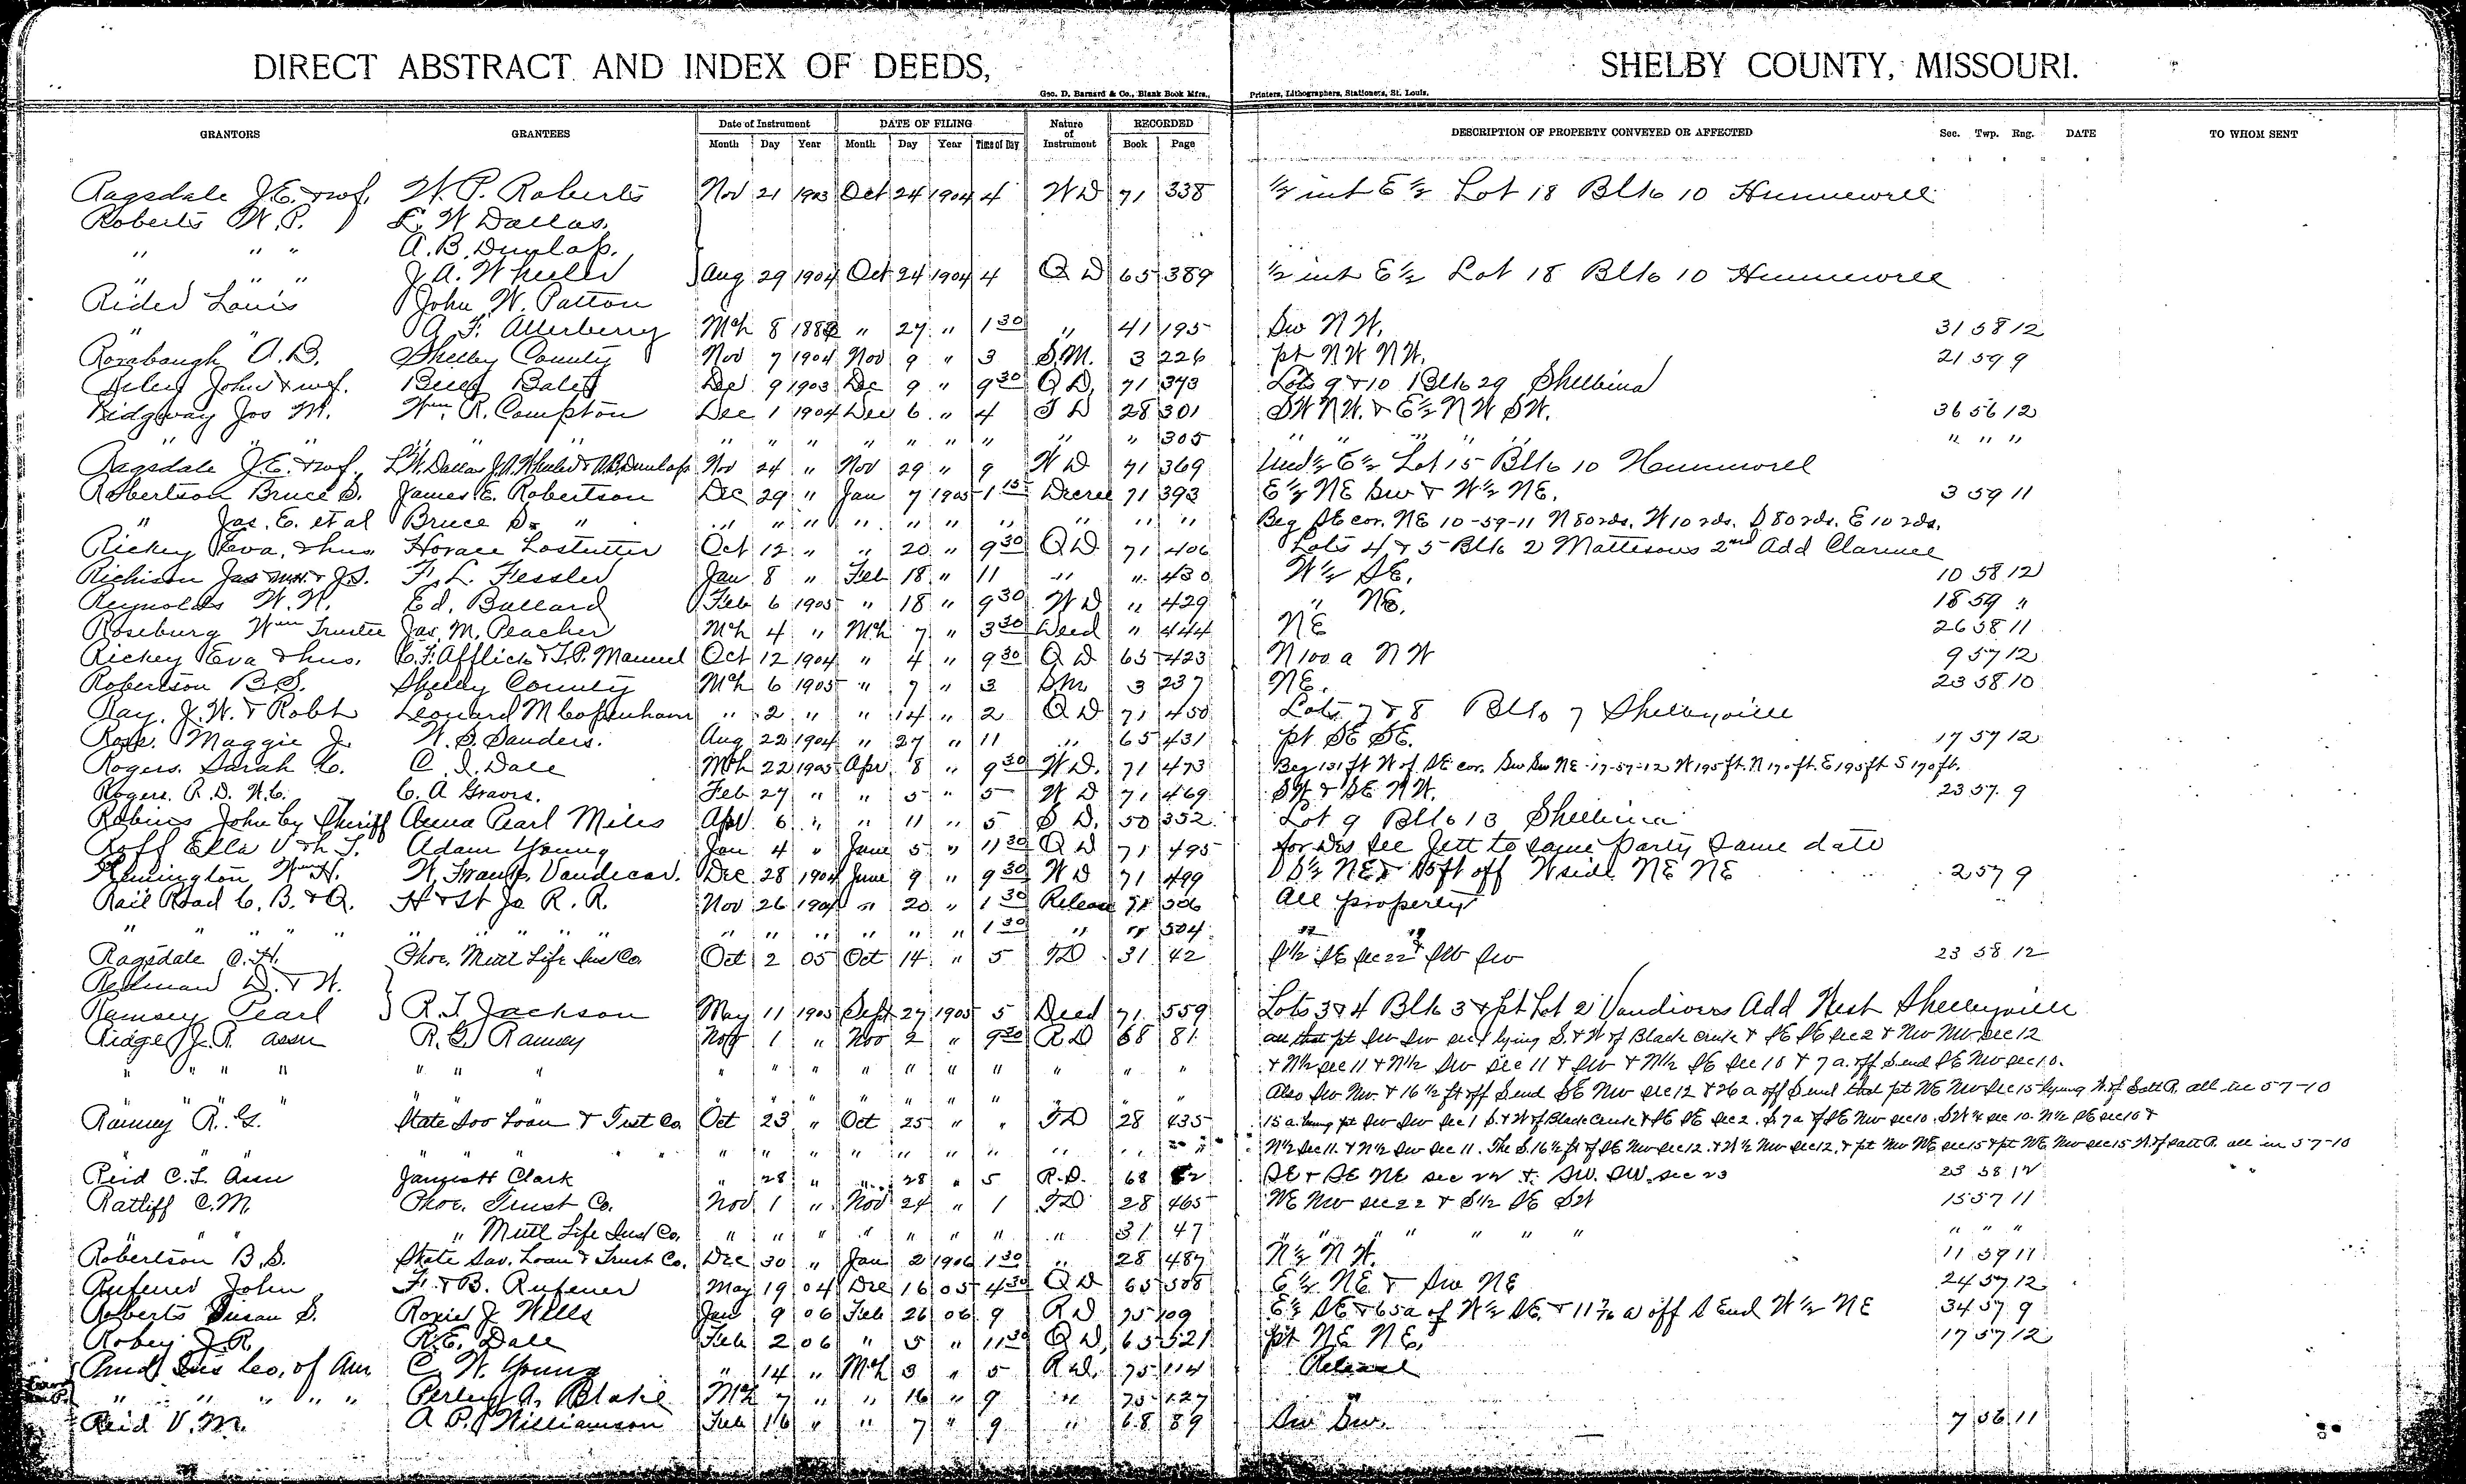 DIRECT ABSTRACT AND INDEX OF DEEDS, SHELBY COUNTY, MISSOURI.
Geo. D. Barnard & Co., Blank Book Mfrs., Printers, Lithographers, Stationers, St. Louis.
GRANTORS GRANTEES Date of Instrument DATE OF FILING Nature of Instrument RECORDED DESCRIPTION OF PROPERTY CONVEYED OR AFFECTED Sec. Twp. Rng. DATE TO WHOM SENT
Month Day Year Month Day Year Time of Day Book Page
Ragsdale J.E. & wf. W. P. Roberts Nov 21 1903 Oct 24 1904 4 W D 71 338 1/2 int E 1/2 Lot 18 Blk 10 Hunnewell
Roberts W. P. L. W Dallas.
" " " A. B. Dunlap.
" " " J. A. Wheeler Aug 29 1904 Oct 24 1904 4 Q D 65 389 1/2 int E 1/2 Lot 18 Blk 10 Hunnewell
Rider Louis John W. Patton
" " A. F. Atterberry Mch 8 " 27 " 1 30 " 41 195 Sw N W. 31 58 12
Rorabaugh A. B. Shelby County Nov 7 1904 Nov 9 " 3 S.M. 3 226 pt N W N W. 21 59 9
John & wf. Dec 9 1903 Dec 9 " 9 30 Q D. 71 373 Lots 9 & 10 Blk 29 Shelbina
Ridgway Jos M. Wm. R. Compton Dec 1 1904 Dec 6 " 4 T D 28 301 SW NW. & E 1/2 N W SW. 36 56 12
" " " " " " " " " " " " " " " 305 " " " " " " " "
Ragsdale J. E. & wf. L.W. Dallas J.A. Wheeler & A.B. Dunlap Nov 24 " Nov 29 " 9 W D 71 369 Und 1/2 E 1/2 Lot 15 Blk 10 Hunnewell
Robertson Bruce S. James E. Robertson Dec 29 " Jan 7 1905 1 15 Decree 71 393 E 1/2 NE Sw & W 1/2 NE. 3 59 11
" Jas. E. et al Bruce S. " " " " " " " " " " " Beg SE cor. NE 10-59-11 N 80 rds. W 10 rds. S 80 rds. E 10 rds.
Rickey Eva, & hus Horace Lostutter Oct 12 " " 20 " 9 30 Q D. 71 406 Lots 4 & 5 Blk 2 Mattisons 2nd Add Clarence
Richison Jas & J.S. F. L. Fessler Jan 8 " Feb 18 " 11 " " 430 W 1/2 SE. 10 58 12
Reynolds W. W. Ed. Ballard Feb 6 1905 " 18 " 9 30 W D " 429 " NE. 18 59 "
Roseburg Wm Trustee Jas. M. Peacher Mch 4 " Mch 7 " 3 30 Deed " 444 NE 26 58 11
Rickey Eva & hus. C. F. Afflick & T. P. Manuel Oct 12 1904 " 4 " 9 30 Q D 65 423 N 100 a N W 9 57 12
Robertson B. S. Shelby County Mch 6 1905 " 7 " 3 Sm 3 237 NE. 23 58 10
Ray, J. W. & Robt Leonard M Copenhaver " 2 " " 14 " 2 Q D 71 450 Lots 7 & 8 Blk 7 Shelbyville
Maggie J. W. S. Sanders. Aug 22 1904 " 27 " 11 " 65 431 pt SE SE. 17 57 12
Rogers. Sarah C. C. I. Dale Mch 22 1905 Apr 8 " 9 30 W D. 71 473 Beg 131 ft W of SE cor. Sw Sw NE -17-57-12 W 195 ft. N 170 ft. E 195 ft S 170 ft.
Rogers. R. D. W.C. C. A Graves. Feb 27 " " 5 " 5 W D 71 469 SW & SE NW. 23 57 9
Robins John by Sheriff Anna Pearl Miles Apr 6 " " 11 " 5 S D. 50 352 Lot 9 Blk 13 Shelbina
Roff Ella V & L. T. Adam Young Jan 4 " June 5 " 11 30 Q D 71 495 for Des see Jett to same party same date
Remington Wm H. W. Frank Vandiver. Dec 28 1904 June 9 " 9 30 W D 71 499 S 1/2 NE & 15 ft off W side NE NE 2 57 9
Rail Road C. B. & Q. H & St Jo R. R. Nov 26 1904 " 20 " 1 30 Release 506 All property
" " " " " " " " " " " " " 1 30 " " 504 " "
Ragsdale C. H. Phoe. Mutl Life Ins Co. Oct 2 05 Oct 14 " 5 TD 31 42 S 1/2 SE sec 22 & SW Sw 23 58 12
Redman D. & W.
Ramsey Pearl R. T Jackson May 11 1905 Sept 27 1905 5 Deed 71 559 Lots 3 & 4 Blk 3 & pt Lot 2 Vandivers Add West Shelbyville
Ridge J. R. assn R. G. Ramey Nov 1 " Nov 2 " 9 30 R D 68 81 all that pt Sw Sw sec 1 lying S. & W of Black Creek & SE SE sec 2 & Nw Nw sec 12
" " " " " " " " " " " " " " " " & N 1/2 sec 11 & N 1/2 Sw sec 11 & SW & N 1/2 SE sec 10 & 7 a. off S end SE Nw sec 10.
" " " " " " " " " " " Also Sw Nw. & 16 1/2 ft off S end SE Nw sec 12 & 26 a off S end that pt NE Nw Sec 15 lying N. of Salt R. all in 57-10
Ramey R. G. State Sav Loan & Trust Co Oct 23 " Oct 25 " " TD 28 435 15 a. being pt Sw Sw Sec 1 S. & W of Black Creek & SE SE sec 2. S. 7 a of SE Nw sec 10. SW 1/4 sec 10. N 1/2 SE sec 10 &
" " " " " " " " " " " " " N 1/2 Sec 11. & N 1/2 Sw sec 11. The S. 16 1/2 ft of SE Nw sec 12. & W 1/2 Nw sec 12, & pt Nw NE sec 15 & pt NE Nw sec 15 N. of Salt R. all in 57-10
Reid C. L. Assn Clark " 28 " " 28 " 5 R.D. 68 82 SE & SE NE sec 22 & SW. SW. sec 23 23 58 12
Ratliff C. M. Phoe. Trust Co. Nov 1 " Nov 24 " 1 TD 28 465 NE Nw sec 22 & S 1/2 SE SW 15 57 11
" " " Mutl Life Ins Co. " " " " " " " " 31 47 " " " " " " " " "
Robertson B. S. State Sav. Loan & Trust Co. Dec 30 " Jan 2 1906 1 30 " 28 487 N 1/2 N W. 11 59 11
Rufener John F. & B. Rufener May 19 04 Dec 16 05 4 30 Q D 65 508 E 1/2 NE & Sw NE 24 57 12
Roberts Susan S. Roxie J Wells Jan 9 06 Feb 26 06 9 R D 75 109 E 1/2 SE & 65 a of W 1/2 SE. & 11 a off S End W 1/2 NE 34 57 9
Robey J. R. R. E. Dale Feb 2 06 " 5 " 11 30 Q D, 65 521 pt NE NE. 17 57 12
Ins Co. of Am C. W. Young " 14 " Mch 3 " 5 R D. 75 114 Release
" " " " " Perley A. Blake Mch 7 " " 16 " 9 " 75 127 "
Reid V. M. A. P. Williamson Feb 16 " " 7 " 9 " 68 89 Sw Sw. 7 56 11